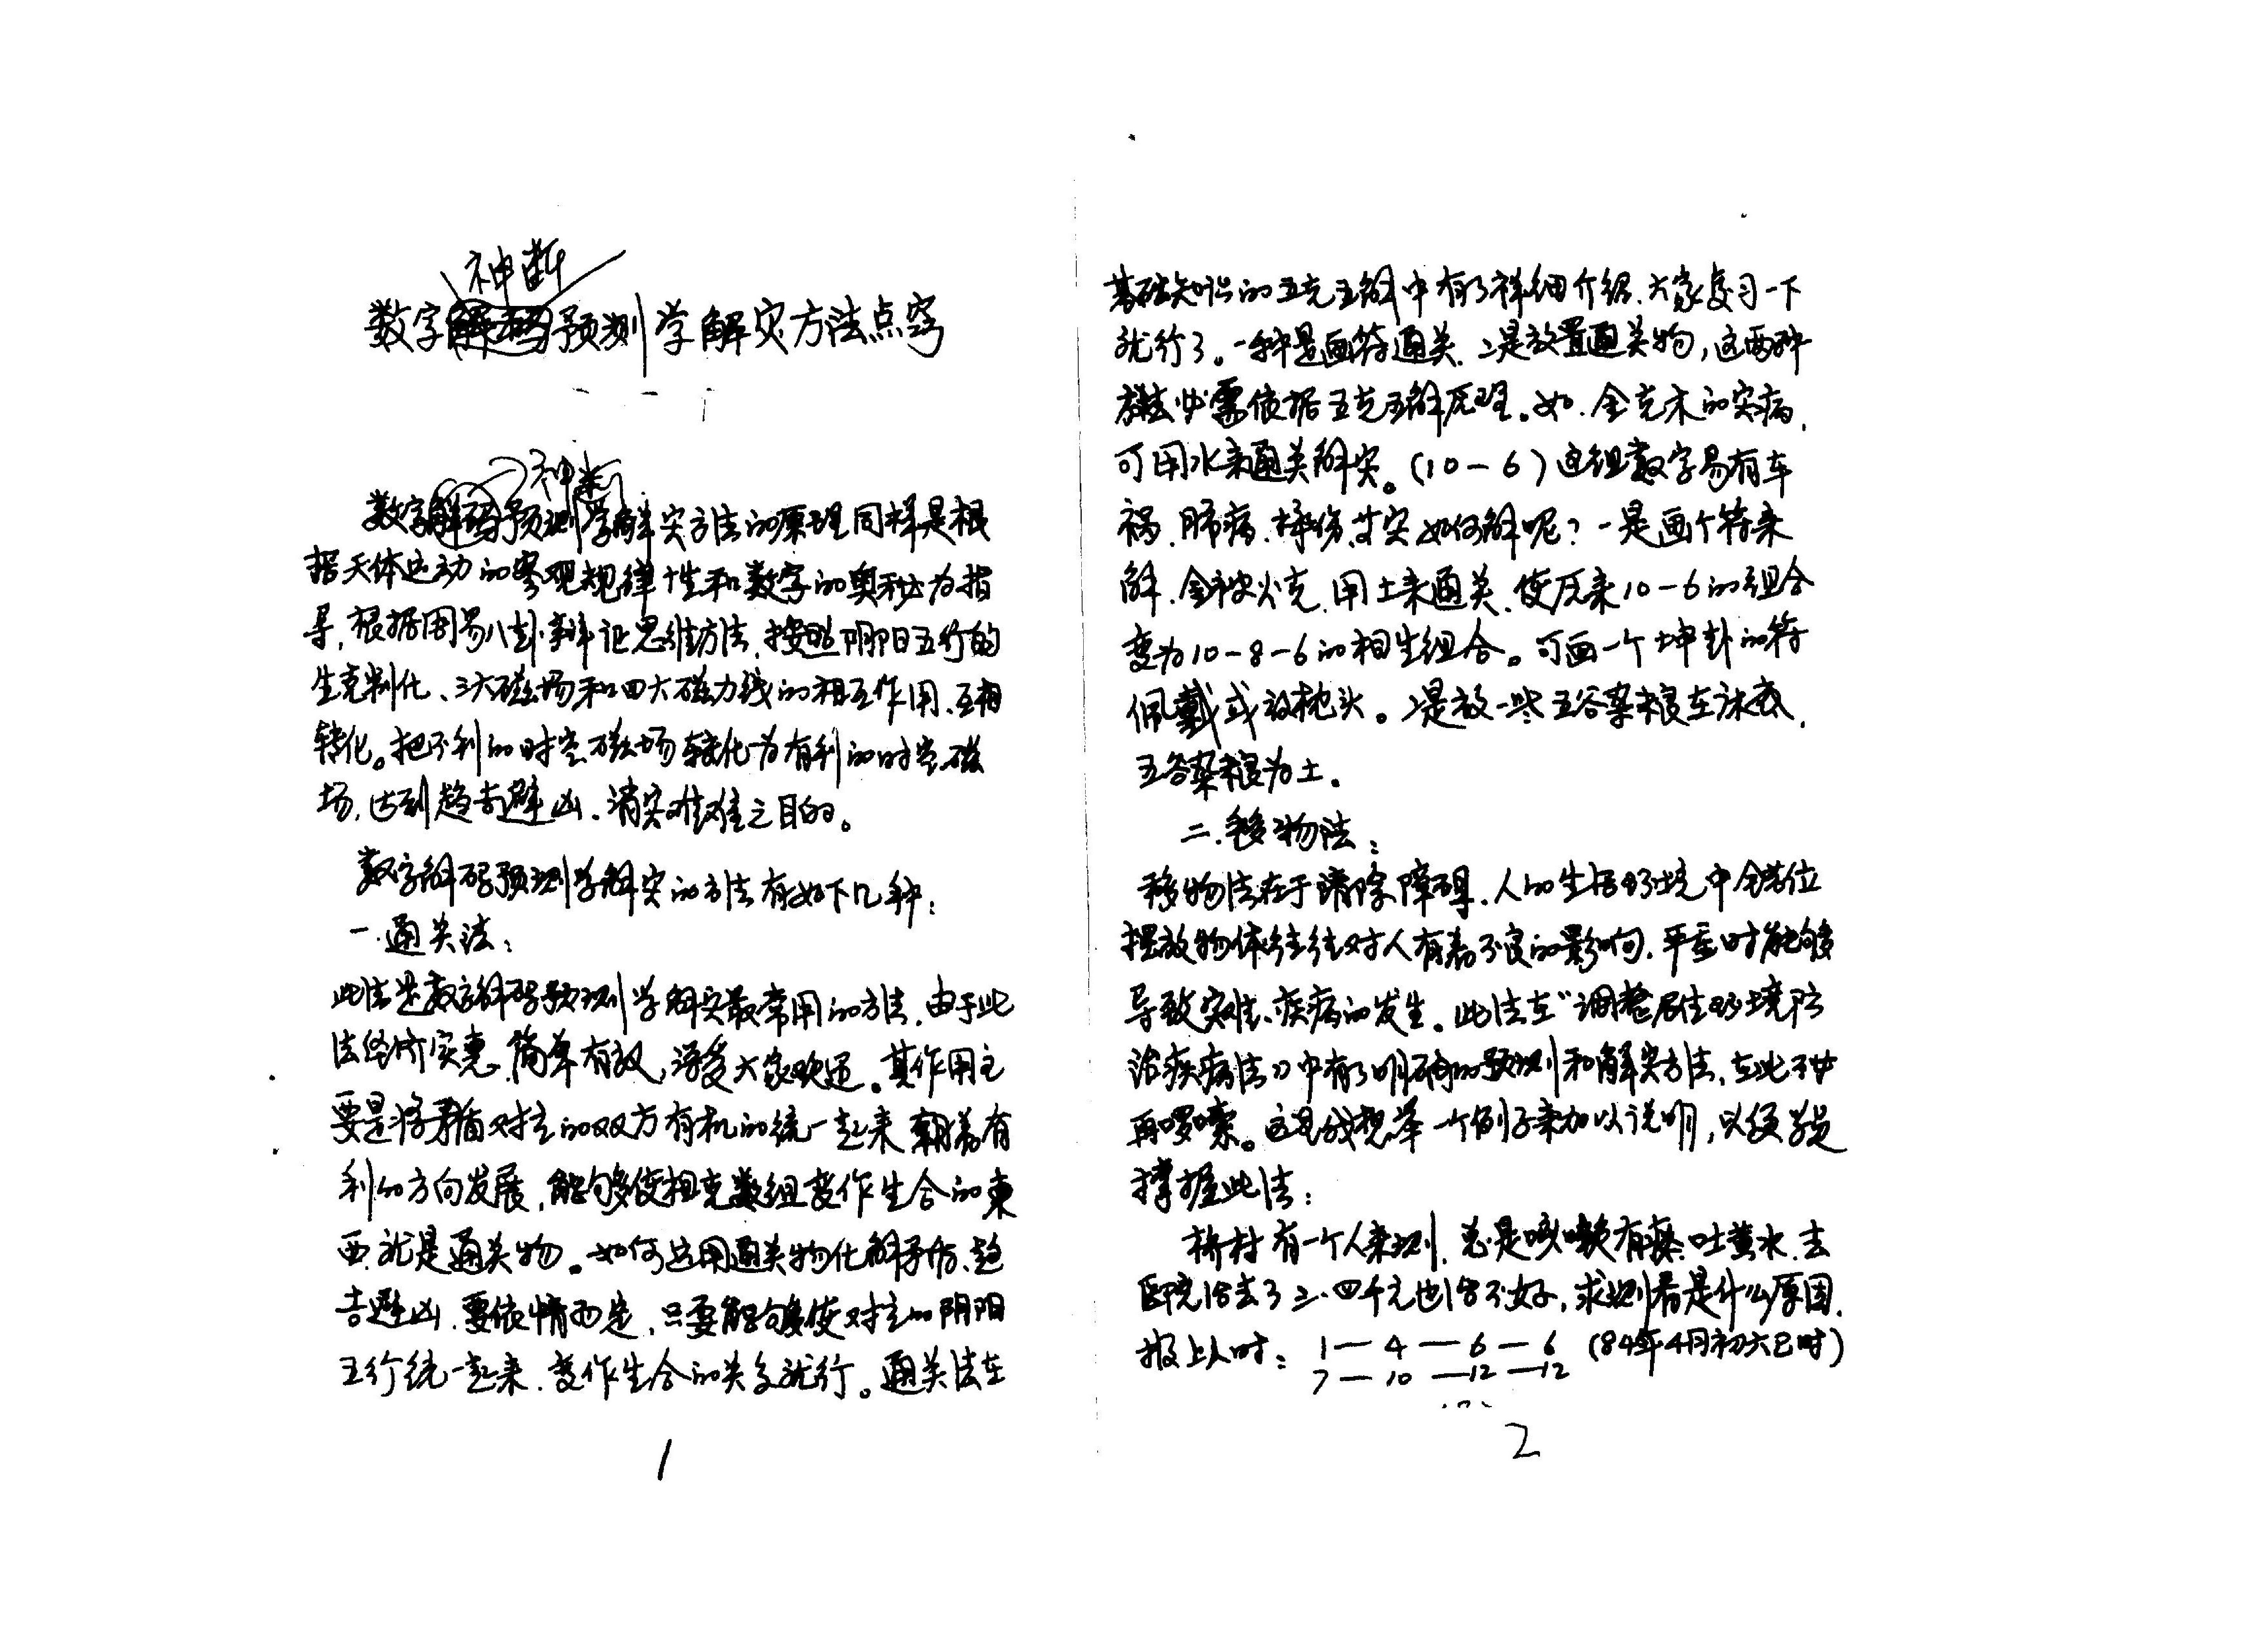 神断
数字解码预测学解灾方法点窍
神断
数字解码预测学解灾方法的原理同样是根
据天体运动的客观规律性和数字的奥秘为指
导,根据周易八卦辩证思维方法,按照阴阳五行的
生克制化、三大磁场和四大磁力线的相互作用、互相
转化。把不利的时空磁场转化为有利的时空磁
场,达到趋吉避凶、消灾难之目的。
数字解码预测学解灾的方法有如下几种:
一.通关法:
此法是数字解码预测学解灾最常用的方法,由于此
法经济实惠、简单有效,深受大家欢迎。其作用主
要是将矛盾对立的双方有机的统一起来,朝着有
利的方向发展,能够使相克数组变作生合的东
西就是通关物。如何运用通关物化解矛盾、趋
吉避凶,要依情而定,只要能够使对立的阴阳
五行统一起来,变作生合的关系就行。通关法在
1
基础知识的五克五解中有了祥细介绍,大家复习一下
就行了。一种是画符通关,二是放置通关物,这两种
方法必需依据五克五解原理。如.金克木的灾病,
可用水来通关解灾。(10-6)这组数字易有车
祸、肺病、摔伤,其灾如何解呢?一是画个符来
解,金被火克,用土来通关,使原来10-6的组合
变为10-8-6的相生组合。可画一个坤卦的符
佩戴或放枕头。二是放一些五谷杂粮在床底,
五谷杂粮为土。
二.移物法:
移物法在于清除障碍,人的生活环境中错位
摆放物体往往对人有着不良的影响,严重时能够
导致灾难、疾病的发生。此法在"调整居住环境防
治疾病法"中有了明确的预测和解灾方法,在此不必
再啰嗦。这里我想举一个例子来加以说明,以便学员
掌握此法:
桥村有一个人来测,总是咳嗽有痰,吐黄水,去
医院治去了三、四千元也治不好,求测看是什么原因,
报上人时:1—4—6—6(84年4月初六巳时)
7—10—12—12
2